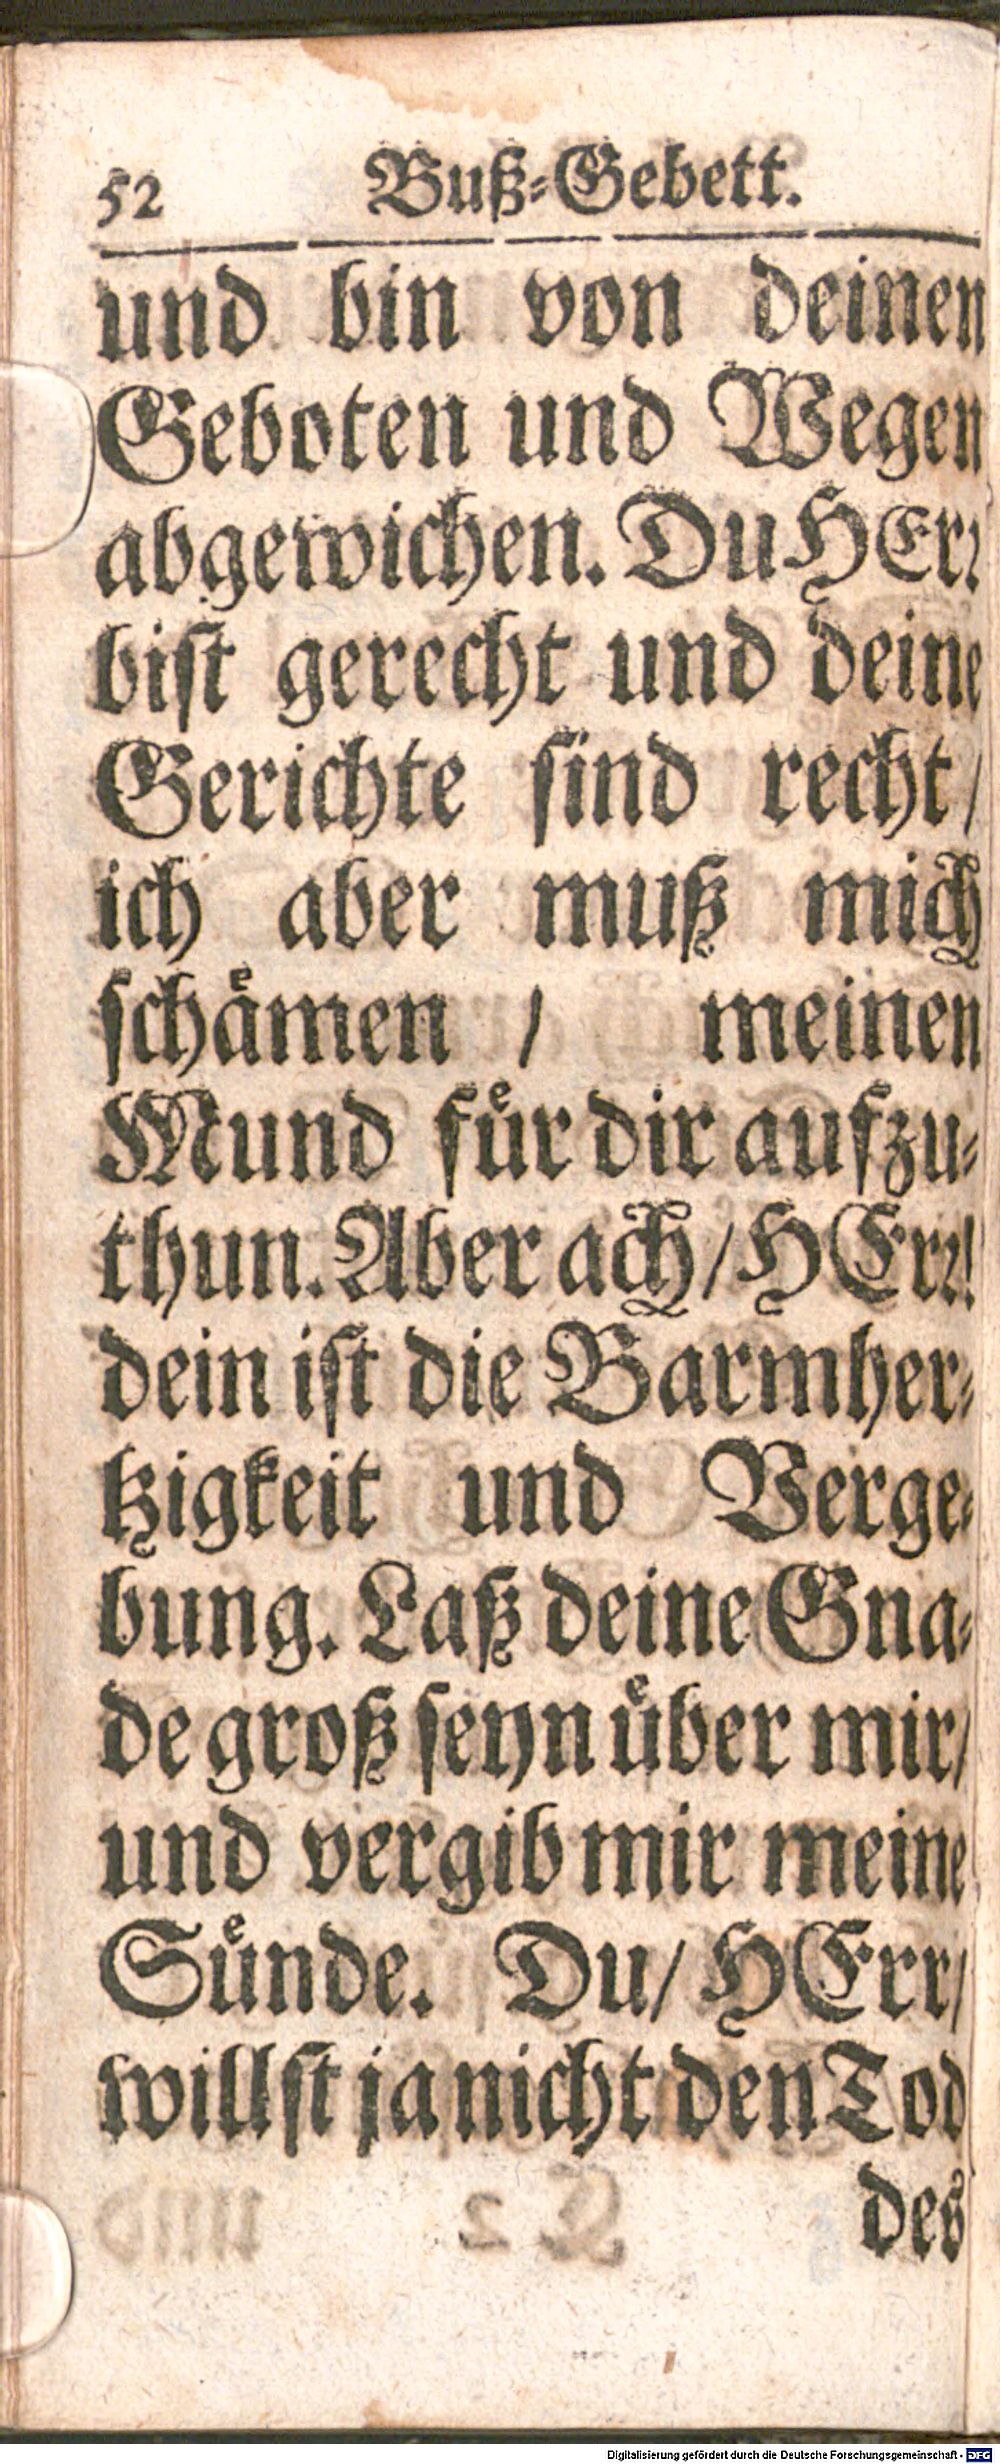 52 Buß-Gebett.
und bin von deinen
Geboten und Wegen
abgewichen. Du HErꝛ
bist gerecht und deine
Gerichte sind recht/
ich aber muß mich
schaͤmen / meinen
Mund fuͤr dir aufzu-
thun. Aber ach/ HErꝛ!
dein ist die Barmher-
tzigkeit und Verge-
bung. Laß deine Gna-
de groß seyn uͤber mir/
und vergib mir meine
Suͤnde. Du/ HErr/
willst ja nicht den Tod
des
Digitalisierung gefördert durch die Deutsche Forschungsgemeinschaft - DFG